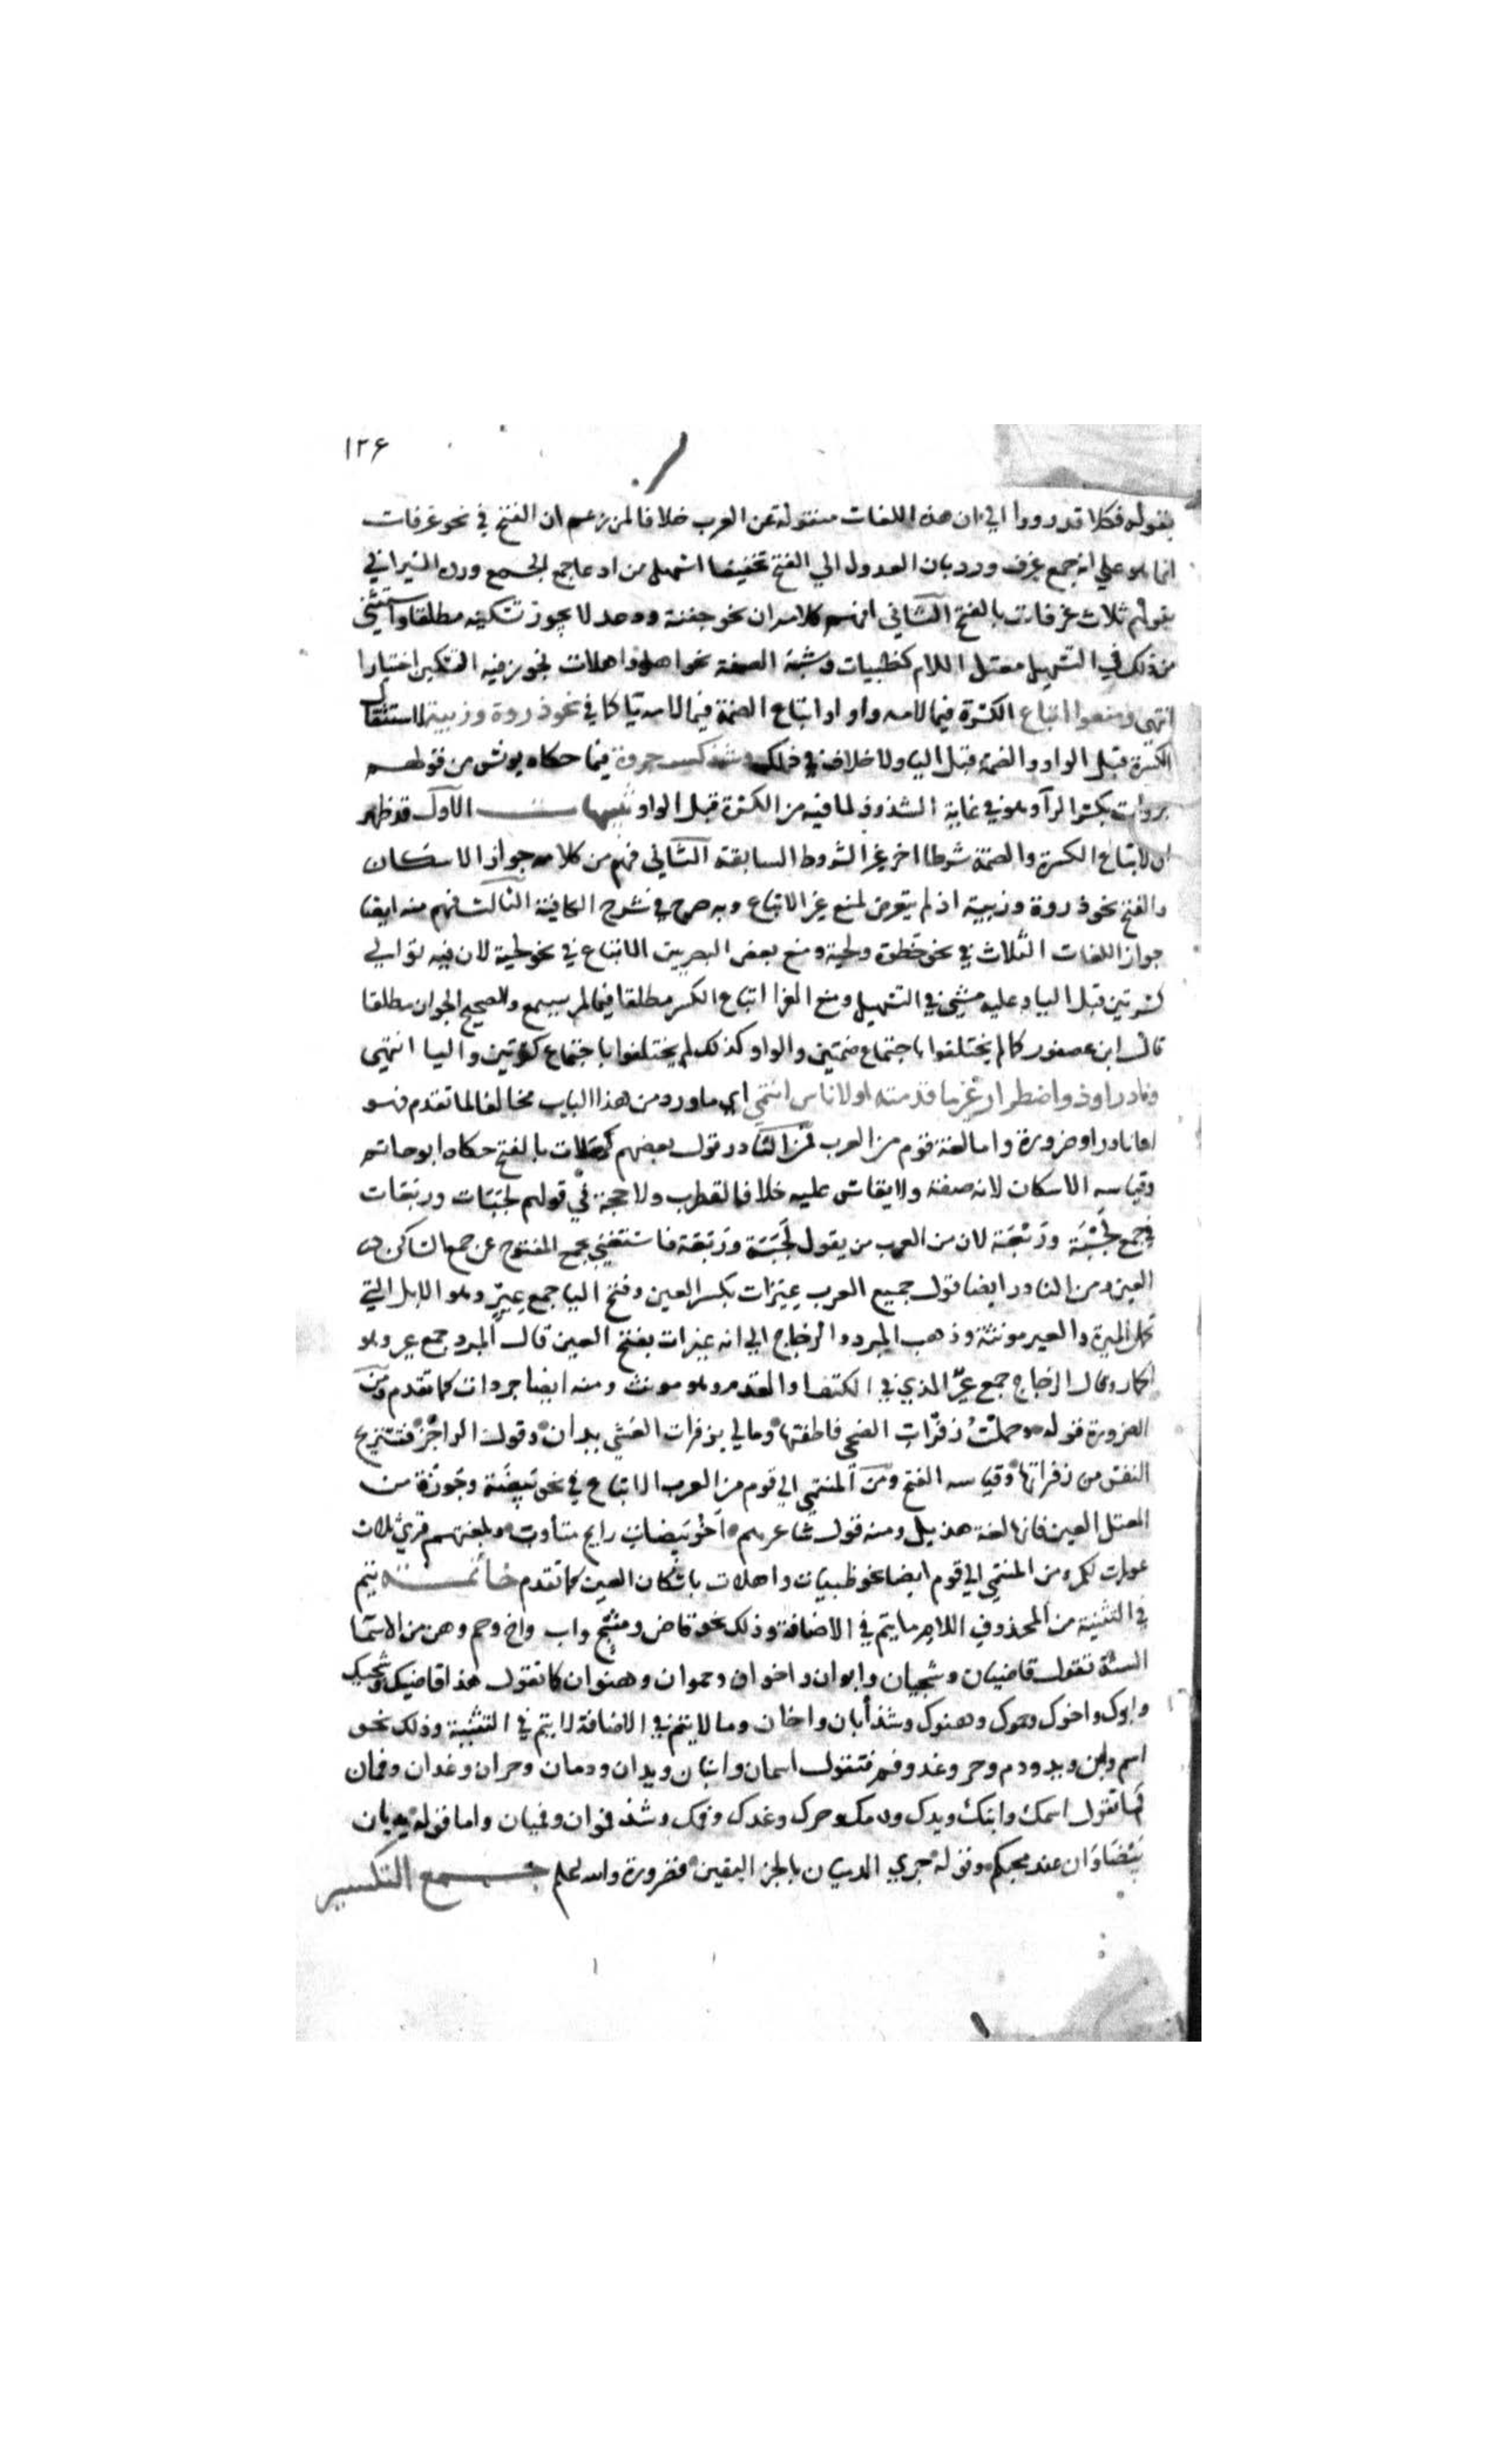 ١٢٦
بقوله فكلا قد رووا الي ان هذه اللغات منقولة عن العرب خلافا لمن زعم ان الفتح في نحو غرفات
انما هو علي انه جمع غرف ورد بان العدول الي الفتح تخفيفا اسهل من ادعا جمع الجمع ورده السيرافي
بقولهم ثلاث غرفات بالفتح الثاني افهم كلامه ان نحو جفنة ودعد لا يجوز تسكينه مطلقا واستثني
من ذلك في التسهيل معتل اللام كظبيات وشبه الصفة نحو اهل واهلات فجوز فيه التسكين اختيارا
انتهي ومنعوا اتباع الكسرة فيما لامه واو او اتباع الضمة فيما لامه يا كما في نحو ذروة وزبية لاستثقال
الكسرة قبل الواو والضمة قبل اليا ولا خلاف في ذلك وشذ كسر جروة فيما حكاه يونس من قولهم
جروات بكسر الرآ وهو في غاية الشذوذ لما فيه من الكسرة قبل الواو تنبيهات الاول قد ظهر
ان لاتباع الكسرة والضمة شرطا اخر غير الشروط السابقة الثاني فهم من كلامه جواز الاسكان
والفتح نحو ذروة وزبية اذ لم يتعرض لمنع غير الاتباع وبه صرح في شرح الكافية الثالث فهم منه ايضا
جواز اللغات الثلاث في نحو خطوة ولحية ومنع بعض البصريين الاتباع في نحو لحية لان فيه توالي
كسرتين قبل اليا وعليه مشي في التسهيل ومنع الفرا اتباع الكسر مطلقا فيما لم يسمع والصحيح الجواز مطلقا
قال ابن عصفور كما لم يختلفوا باجتماع ضمتين والواو كذلك لم يختلفوا باجتماع كسرتين واليا انتهي
ونادر او ذو اضطرار غير ما قدمته او لاناس انتمي اي ما ورد من هذا الباب مخالفا لما تقدم فهو
اما نادر او ضرورة واما لغة قوم من العرب فمن النادر قول بعضهم كهلات بالفتح حكاه ابو حاتم
وقياسه الاسكان لانه صفة ولا يقاس عليه خلافا لقطرب ولا حجة في قولهم لجبات وربعات
في جمع لجبة وربعة لان من العرب من يقول لجبة وربعة فاستغني بجمع المفتوح عن جمع الساكن
العين ومن النادر ايضا قول جميع العرب عيرات بكسر العين وفتح اليا جمع عير وهو الابل التي
تحمل الميرة والعير مونثة وذهب المبرد والزجاج الي انه عيرات بفتح العين قال المبرد جمع عير وهو
الحمار وقال الزجاج جمع عير الذي في الكتف او القدم وهو مونث ومنه ايضا جروات كما تقدم ومن
الضرورة قوله وحملت زفرات الضحي فاطقتها ومالي بزفرات العشي يدان وقول الراجز فتستريح
النفس من زفراتها وقياسه الفتح ومن المنتمي الي قوم من العرب الاتباع في نحو بيضة وجوزة من
المعتل العين فانها لغة هذيل ومنه قول شاعرهم اخو بيضات رايح متاوب وبلغتهم قري ثلاث
عورات لكم ومن المنتمي الي قوم ايضا نحو ظبيات واهلات باسكان العين كما تقدم خاتمة يتم
في التثنية من المحذوف اللام ما يتم في الاضافة وذلك نحو قاض وشج واب واخ وحم وهن من الاسما
الستة تقول قاضيان وشجيان وابوان واخوان وحموان وهنوان كما تقول هذا قاضيك وشجيك
وابوك واخوك وحموك وهنوك وشذ أبان واخان وما لا يتم في الاضافة لا يتم في التثنية وذلك نحو
اسم وابن ويد ودم وحر وغد وفم فتقول اسمان وابنان ويدان ودمان وحران وغدان وفمان
كما تقول اسمك وابنك ويدك ودمك وحرك وغدك وفمك وشذ فموان وفميان واما قوله يديان
بيضاوان عند محكم وقوله جري الدميان بالخبر اليقين فضرورة والله اعلم جمع التكسير